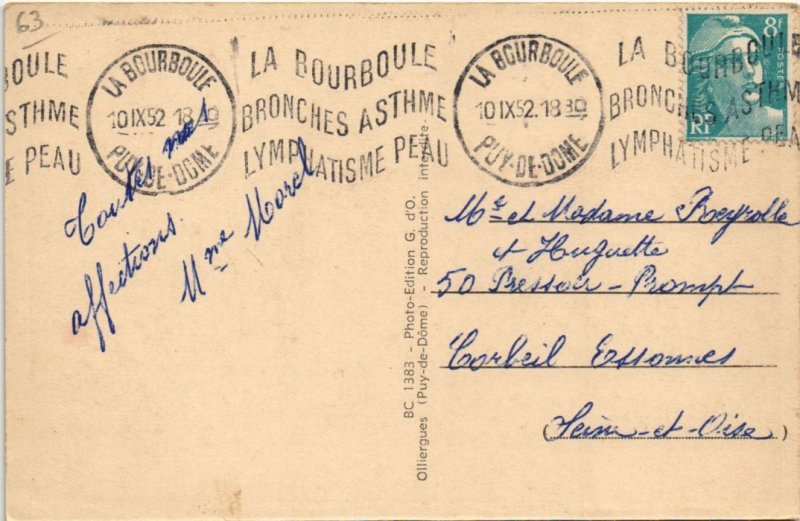 63
BOULE
STHME
E PEAU
LA BOURBOULE
10 IX52.18
PUY-DE-DOME
LA BOURBOULE
BRONCHES ASTHME
LYMPHATISME PEAU
LA BOURBOULE
10 IX52.1830
PUY-DE-DOME
LA BOURBOULE
BRONCHES ASTHM
LYMPHATISME PEA
8F
POSTES
RF
Toutes mes
affections.
Mme Morel
BC 1383 - Photo-Edition G. d'O.
Olliergues (Puy-de-Dôme) - Reproduction interdite.
Mr et Madame Reyrolle
et Huguette
50 Pressoir-Prompt
Corbeil Essonnes
(Seine-et-Oise)